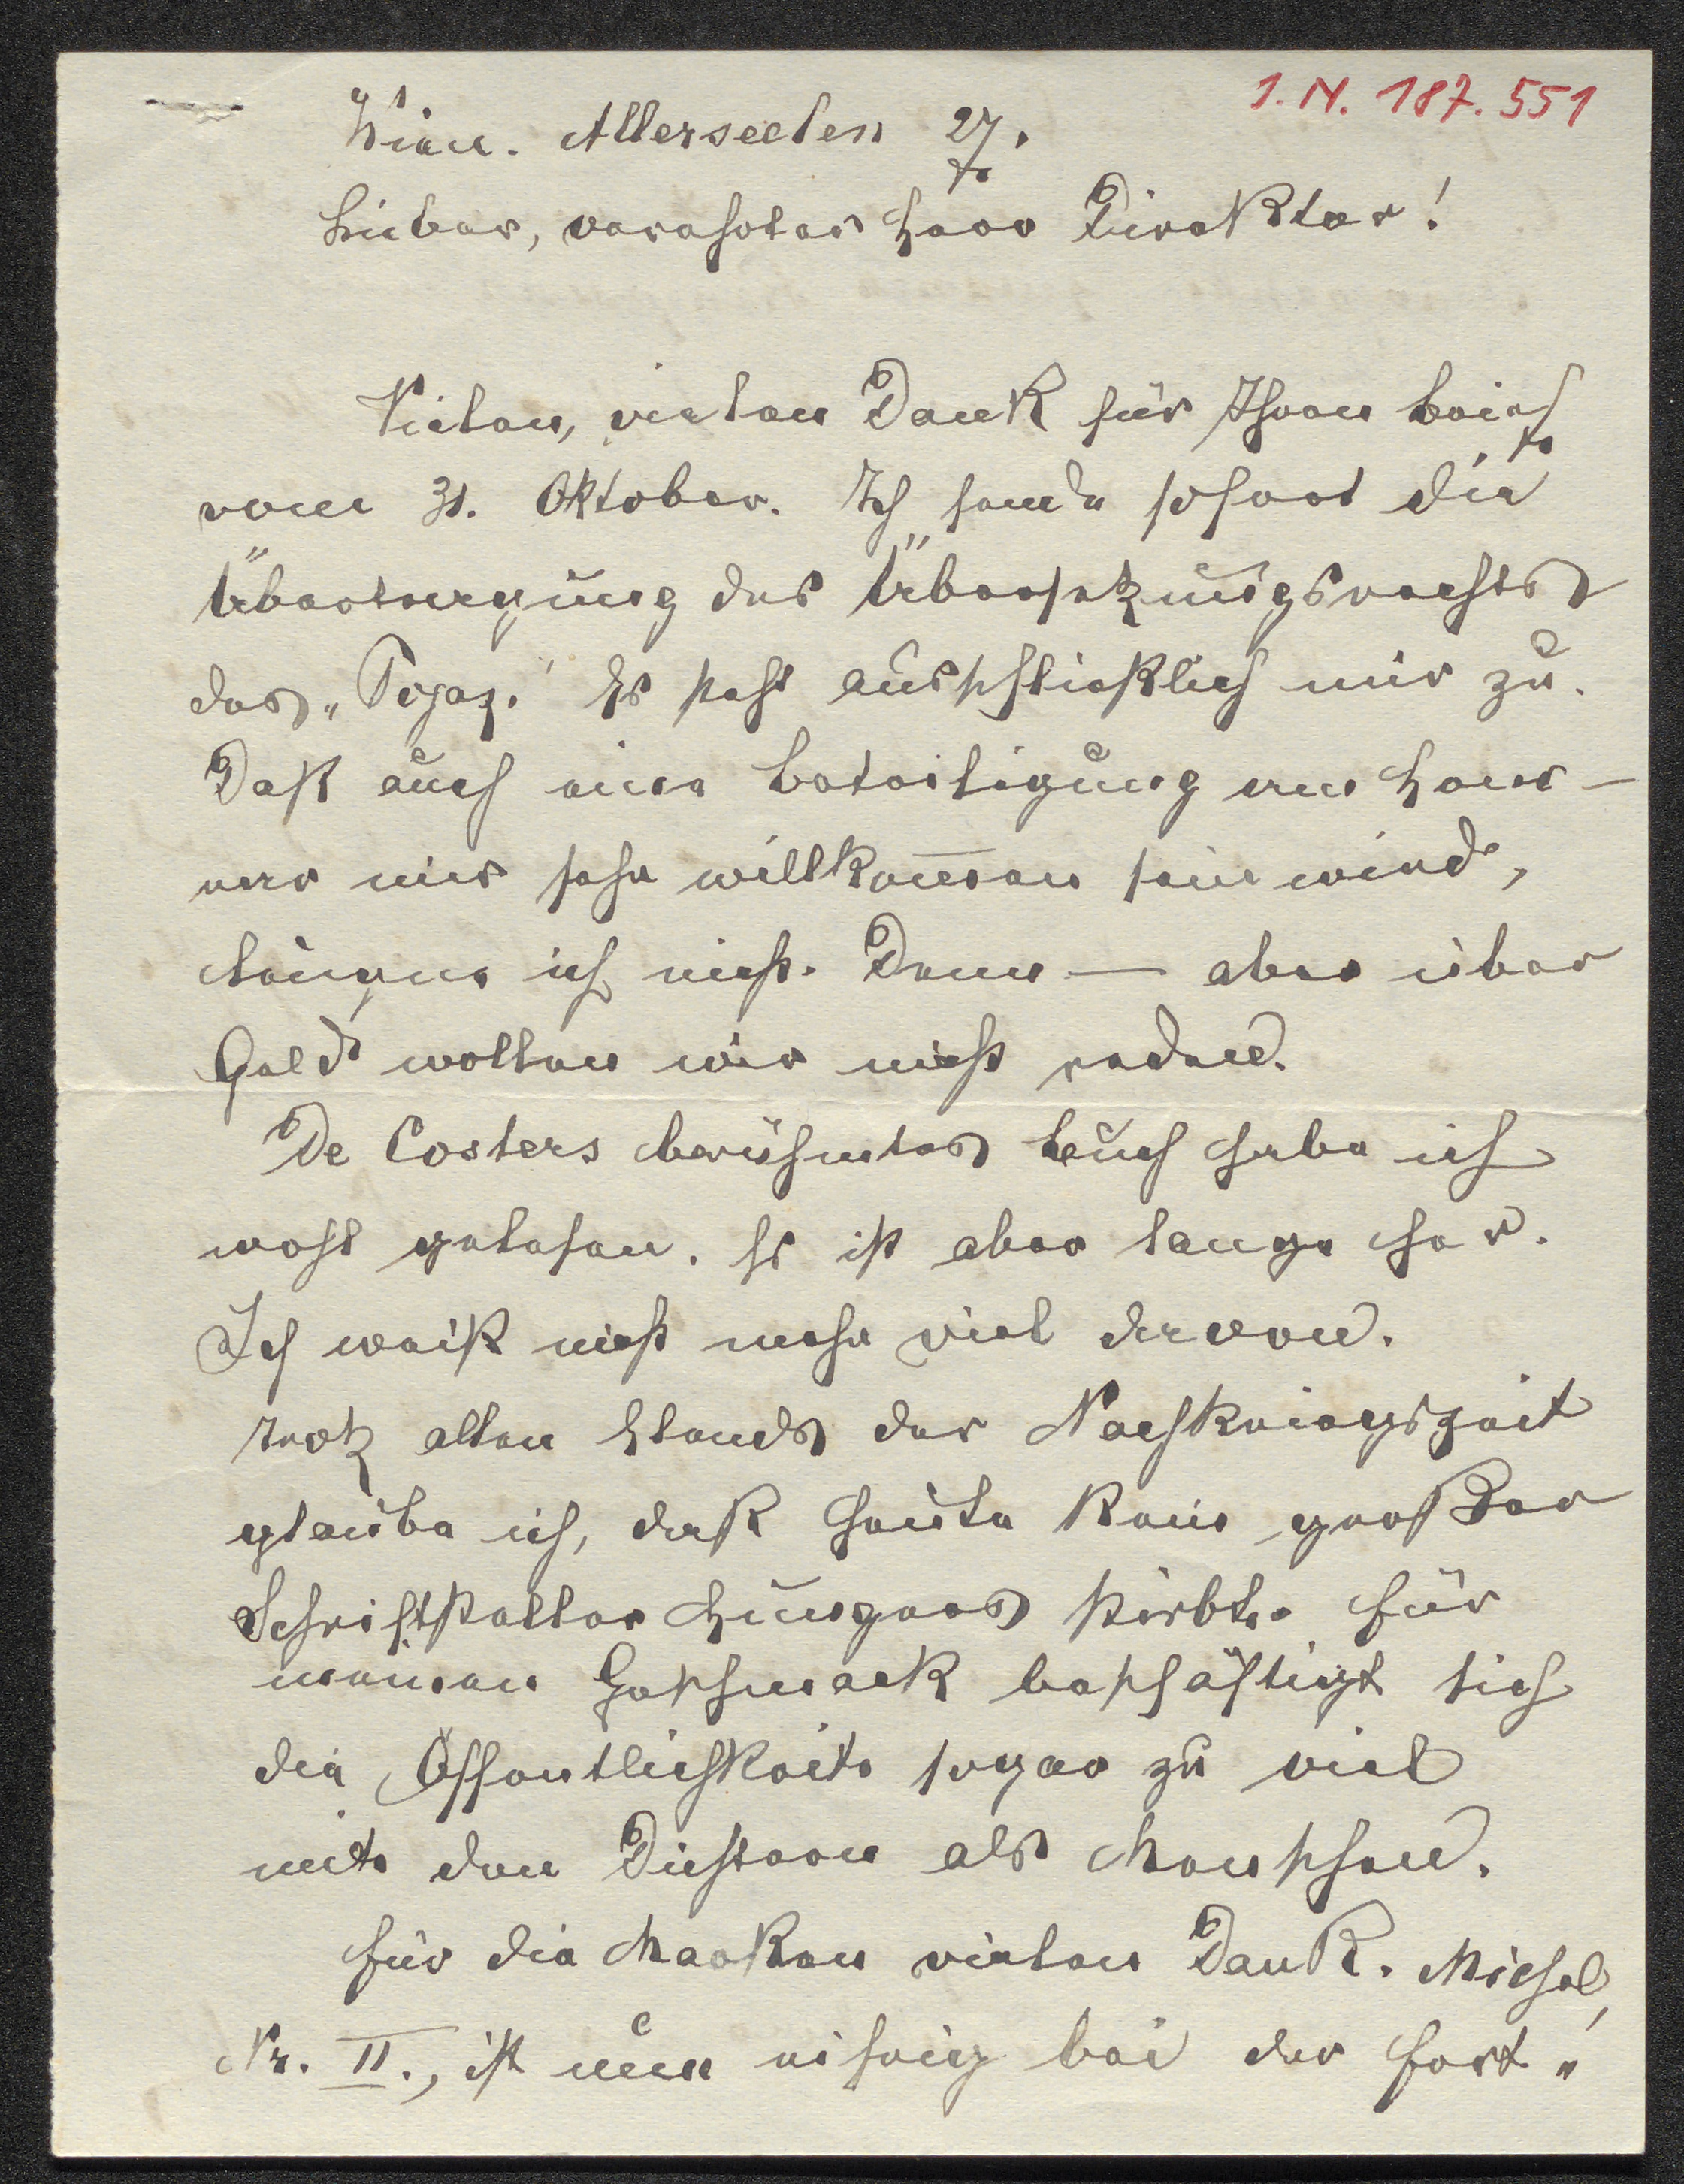 I.N. 187.551
Wien. Allerseelen 27.
Lieber, verehrter Herr Direktor!
Vielen, vielen Dank für Ihren Brief
vom 31. Oktober. Ich sende sofort die
Übertragung des Übersetzungsrechtes
des „Pegas." Es steht ausschließlich mir zu.
Daß auch eine Beteiligung am Hono-
rar mir sehr willkom̅en sein wird,
leugne ich nicht. Denn — aber über
Geld wollen wir nicht reden.
De Costers berühmtes Buch habe ich
wohl gelesen. Es ist aber lange her.
Ich weiß nicht mehr viel davon.
Trotz allen Elends der Nachkriegszeit
glaube ich, daß heute kein großer
Schriftsteller Hungers stirbt. Für
meinen Geschmack beschäftigt sich
die Öffentlichkeit sogar zu viel
mit den Dichtern als Menschen.
Für die Marken vielen Dank. Michel,
Nr. II., ist nun eifrig bei der Fort„